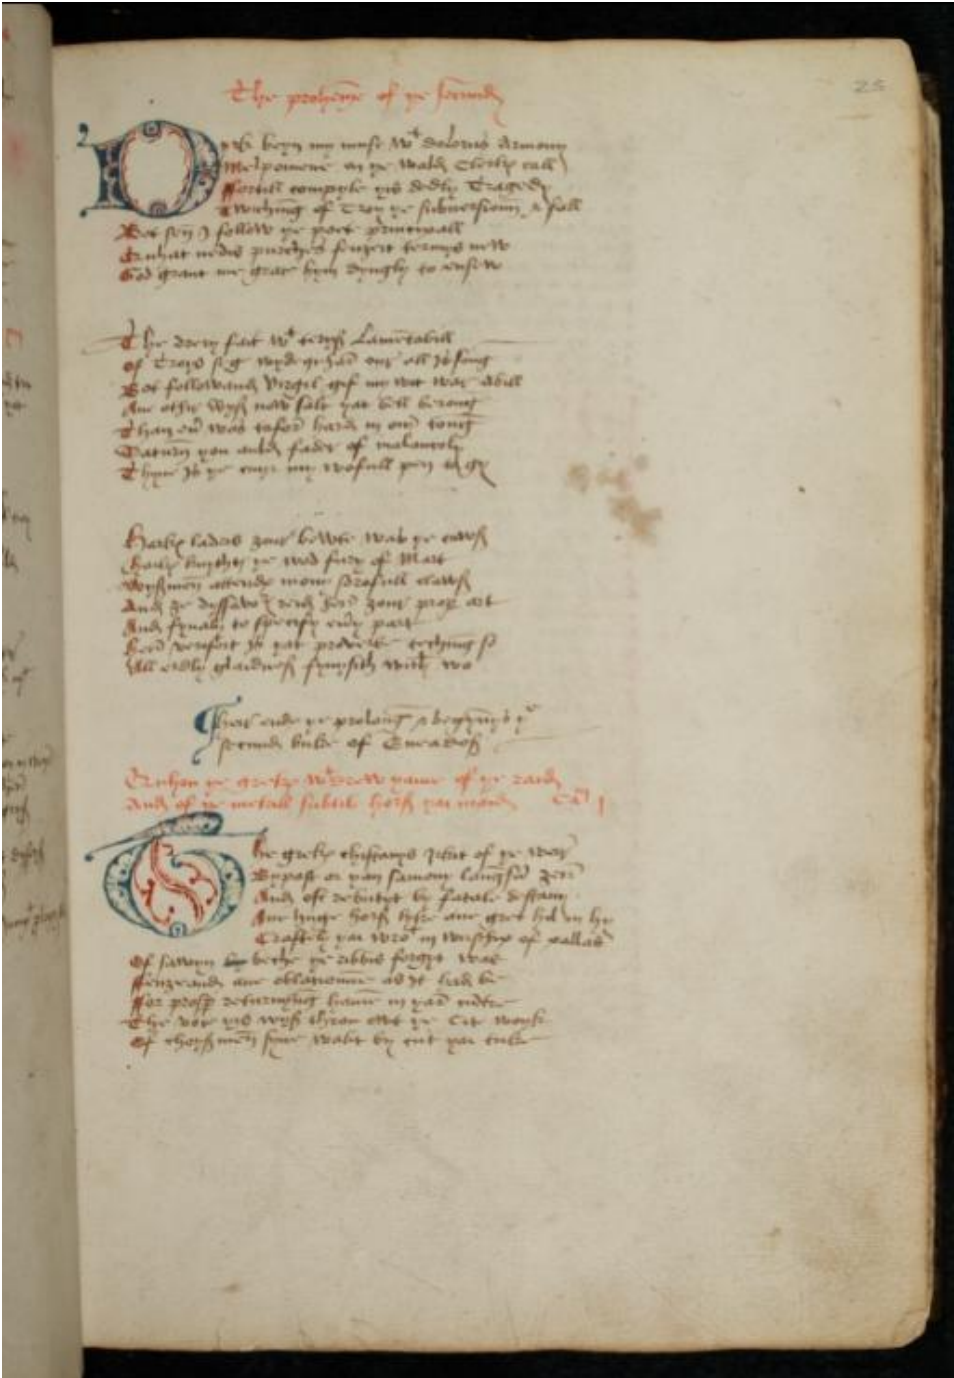 25
The proheme of ye secund
Dyrk beyn my muse wt dolorus armony
Melpomene on ye wald clerkis call
ffortill compyle yis dedly Tragedy
Twiching of Troy ye subversioun & fall
Bot sen I follow ye poet principall
Quhat nedis purches fenzeit termys new
God grant me grace hym dyngly to ensew
The drery fait wt termys lamentabill
Of Troys seg wyde quhar our all is song
Bot followand Virgil gif my wit war abill
Ane other wys now salt yat bell be rong
Than euir was tofor hard in our tong
Saturn yow auld fader of malancoly
Thyne is ye cuyr my wofull pen
Harkis ladeis zour bewte was ye caws
Harkis knychtis ye wod fury of Mart
Wysmen attendis mony sorofull claws
And ze dyssavouris reid heir zour proper art
And fynaly to specify euery part
Heir verifeit is yat proverbe teching so
All erdly glaidnes fynysith with wo
Heir endis ye prolong & begynnys ye
secund buke of Eneados
Quhou ye grekis wtdrew yame of ye raid
And of ye mekill subtil hors yai maid Ca 1
The grekis chiftanys irkit of ye weir
Bypast or yan samony langsum zeir
And oft rebutyt by fatale destany
Ane huge hors lyke ane gret hil in hy
Craftely yai wrocht in wirschip of pallas
Of sawyn beche ye ribbis forgyt was
ffenzeand ane oblatioune as it had be
ffor prosper returnyng hame in yair cuntre
The voce yis wys throu owt ye cite woyk
Of choysmen syne walit by cut yai tuke